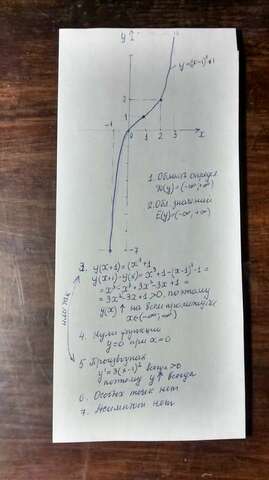 y
y=(x-1)³+1
2
1
-1
0
1
2
3
x
-7
1. Область определ
D(y)=(-∞,+∞)
2. Обл. значений
E(y)=(-∞,+∞)
3. y(x+1)=(x³+1
y(x+1)-y(x)=x³+1-(x-1)³-1=
=x³-x³+3x²-3x+1=
=3x²-3x+1>0, поэтому
y(x)↑ на всём промежутке
x∈(-∞,∞)
или так
4. Нули функции
y=0 при x=0
5. Производная
y'=3(x-1)² всегда >0
поэтому y↑ всегда
6. Особых точек нет
7. Асимптот нет